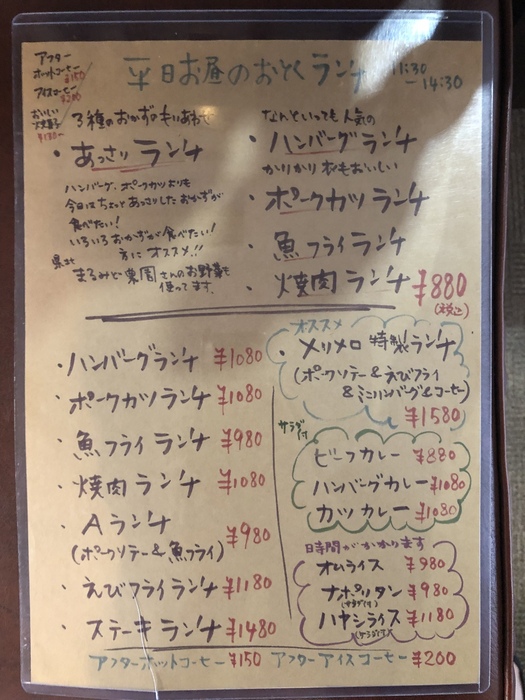 アフター
ホットコーヒー ¥150
アイスコーヒー ¥200
おいしい
¥130〜
平日お昼のおとくランチ 11:30
−14:30
3種のおかずのもりあわせ
・あっさりランチ
ハンバーグ、ポークカツよりも
今日はちょっとあっさりしたおかずが
食べたい!
いろいろおかずが食べたい!
方にオススメ!!
まるみど果園さんのお野菜も
使ってます。
なんといっても人気の
・ハンバーグランチ
かりかり衣もおいしい
・ポークカツランチ
・魚フライランチ
・焼肉ランチ ¥880
(税込)
・ハンバーグランチ ¥1080
・ポークカツランチ ¥1080
・魚フライランチ ¥980
・焼肉ランチ ¥1080
・Aランチ ¥980
(ポークソテー&魚フライ)
・えびフライランチ ¥1180
・ステーキランチ ¥1480
オススメ
・メリメロ特製ランチ
(ポークソテー&えびフライ
&ミニハンバーグ&コーヒー)
¥1580
サラダ付
ビーフカレー ¥880
ハンバーグカレー ¥1080
カツカレー ¥1080
時間がかかります
オムライス ¥980
ナポリタン ¥980
(サラダ付)
ハヤシライス ¥1180
(サラダ付)
アフターホットコーヒー ¥150 アフターアイスコーヒー ¥200